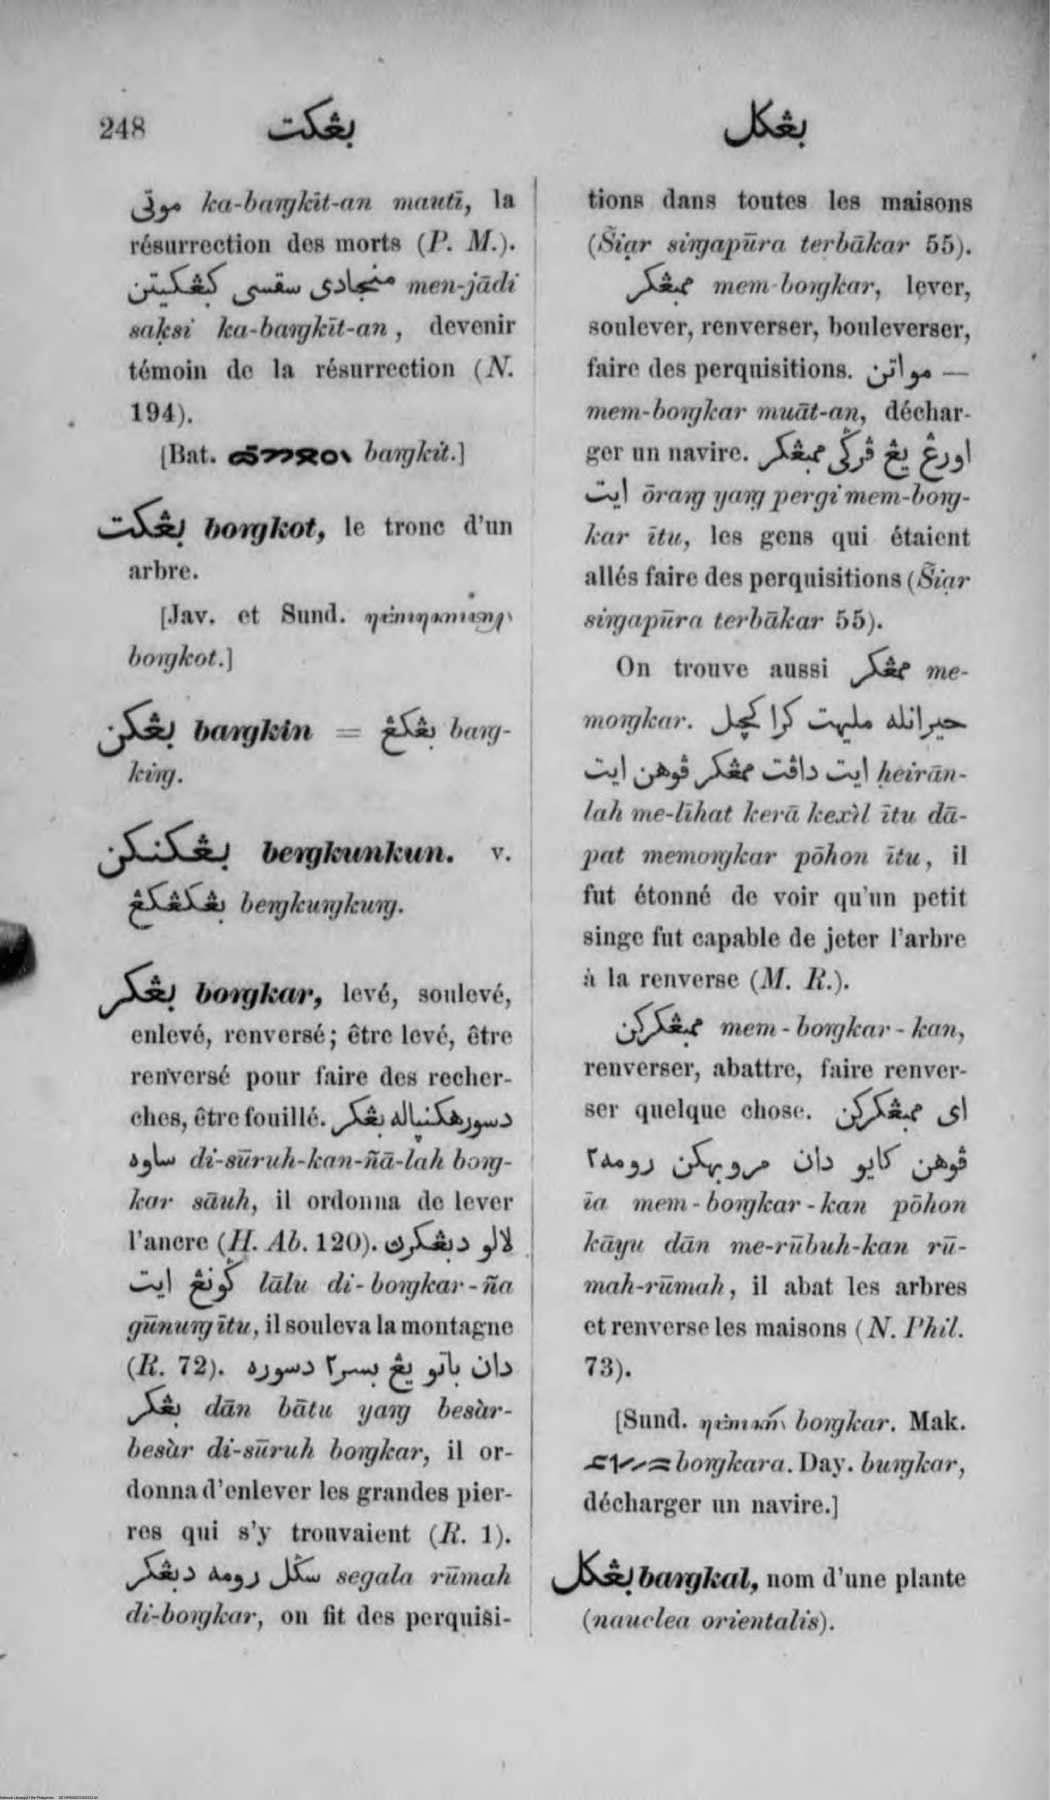 248
بڠكت
بڠكل
موتي ka-baŋkīt-an mautī, la
résurrection des morts (P. M.).
منجادي سقسي كبڠكيتن men-jādi
saḳsi ka-baŋkīt-an, devenir
témoin de la résurrection (N.
194).
[Bat. baŋkit.]
بڠكت boŋkot, le tronc d'un
arbre.
[Jav. et Sund.
boŋkot.]
بڠكن baŋkin = بڠكڠ baŋ-
kiŋ.
بڠكنكن beŋkunkun. v.
بڠكڠكڠ beŋkuŋkuŋ.
بڠكر boŋkar, levé, soulevé,
enlevé, renversé; être levé, être
renversé pour faire des recher-
ches, être fouillé. دسورهكنياله بڠكر
ساوه di-sūruh-kan-ñā-lah boŋ-
kar sāuh, il ordonna de lever
l'ancre (H. Ab. 120). لالو دبڠكرڽ
ݢونڠ ايت lālu di-boŋkar-ña
gūnuŋ ītu, il souleva la montagne
(R. 72). دان باتو يڠ بسر٢ دسوره
بڠكر dān bātu yaŋ besàr-
besàr di-sūruh boŋkar, il or-
donna d'enlever les grandes pier-
res qui s'y trouvaient (R. 1).
سݢل رومه دبڠكر segala rūmah
di-boŋkar, on fit des perquisi-
tions dans toutes les maisons
(Šiạr siŋapūra terbākar 55).
ممبڠكر mem-boŋkar, lever,
soulever, renverser, bouleverser,
faire des perquisitions. مواتن —
mem-boŋkar muāt-an, déchar-
ger un navire. اورڠ يڠ ڤرݢي ممبڠكر
ايت ōraŋ yaŋ pergi mem-boŋ-
kar ītu, les gens qui étaient
allés faire des perquisitions (Šiạr
siŋapūra terbākar 55).
On trouve aussi ممڠكر me-
moŋkar. حيرانله مليهت كرا كچل
ايت داڤت ممڠكر ڤوهن ايت ḥeirān-
lah me-līhat kerā kexìl ītu dā-
pat memoŋkar pōhon ītu, il
fut étonné de voir qu'un petit
singe fut capable de jeter l'arbre
à la renverse (M. R.).
ممبڠكركن mem-boŋkar-kan,
renverser, abattre, faire renver-
ser quelque chose. اي ممبڠكركن
ڤوهن كايو دان مروبهكن رومه٢
īa mem-boŋkar-kan pōhon
kāyu dān me-rūbuh-kan rū-
mah-rūmah, il abat les arbres
et renverse les maisons (N. Phil.
73).
[Sund. boŋkar. Mak.
boŋkara. Day. buŋkar,
décharger un navire.]
بڠكل baŋkal, nom d'une plante
(nauclea orientalis).